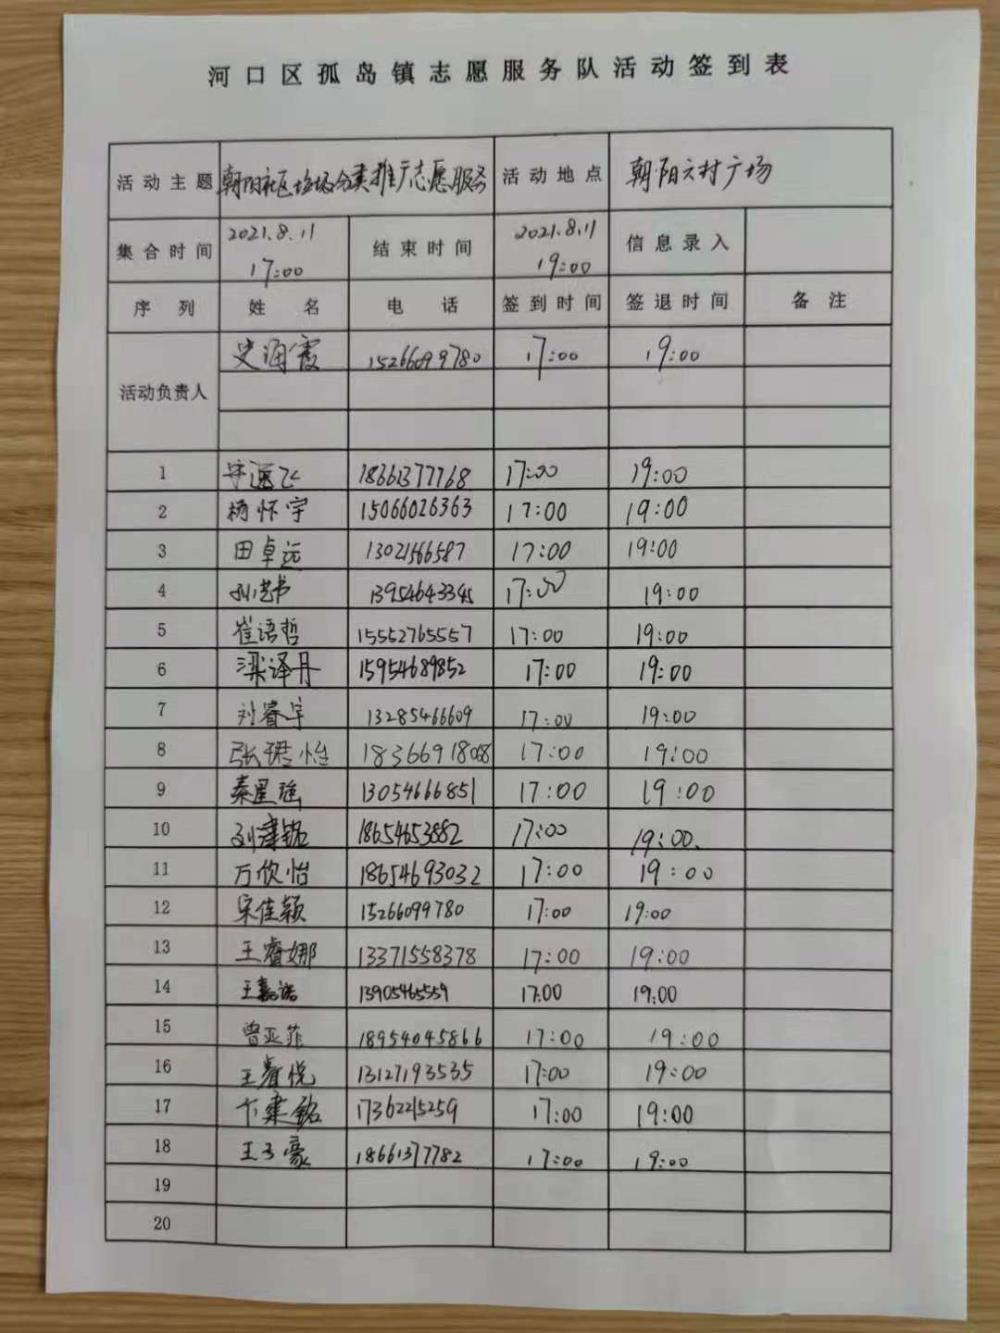 河口区孤岛镇志愿服务队活动签到表
活动主题 朝阳社区垃圾分类推广志愿服务 活动地点 朝阳六村广场
集合时间 2021.8.11 17:00 结束时间 2021.8.11 19:00 信息录入
序列 姓名 电话 签到时间 签退时间 备注
活动负责人 史海霞 15266099780 17:00 19:00
1 18661377768 17:00 19:00
2 杨怀宇 15066026363 17:00 19:00
3 田卓远 13021566587 17:00 19:00
4 13954643345 17:00 19:00
5 崔语哲 15552765557 17:00 19:00
6 梁译丹 15954689852 17:00 19:00
7 刘睿宇 13285466609 17:00 19:00
8 张珺怡 17:00 19:00
9 秦星瑶 13054666851 17:00 19:00
10 18654653882 17:00 19:00.
11 万欣怡 18654693032 17:00 19:00
12 宋佳颖 15266099780 17:00 19:00
13 王睿娜 13371558378 17:00 19:00
14 王嘉诺 13905465559 17:00 19:00
15 曾亚菲 18954045866 17:00 19:00
16 王睿悦 13127193535 17:00 19:00
17 卞建铭 17362215259 17:00 19:00
18 王子豪 18661377782 17:00 19:00
19
20